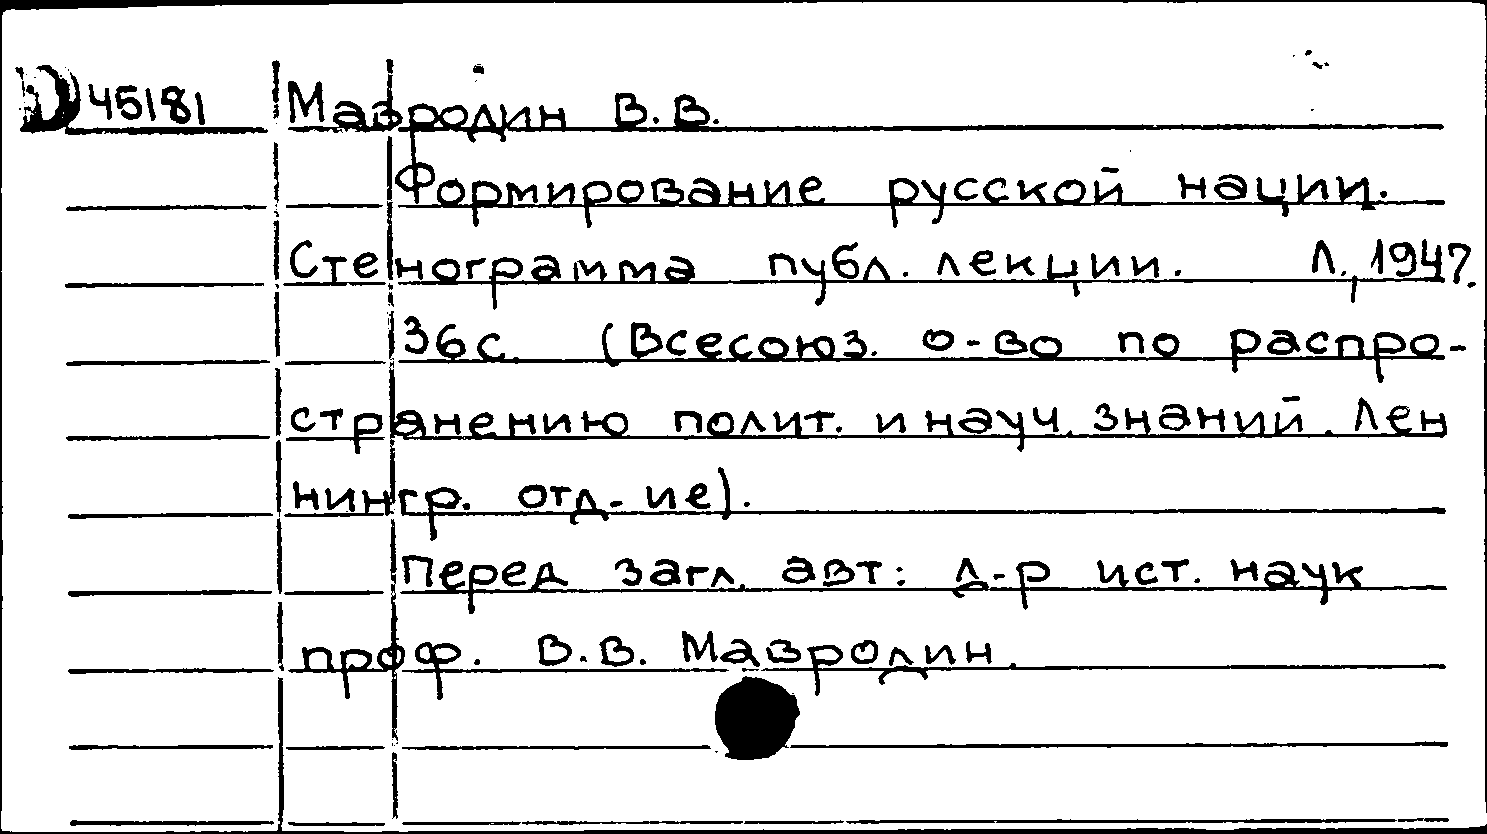 D 45181 Мавродин В.В.
Формирование русской нации.
Стенограмма публ. лекции. Л., 1947.
36 с. (Всесоюз. о-во по распро-
странению полит. и науч. знаний. Лен
нингр. отд-ие).
Перед загл. авт: д-р ист. наук
проф. В.В. Мавродин.